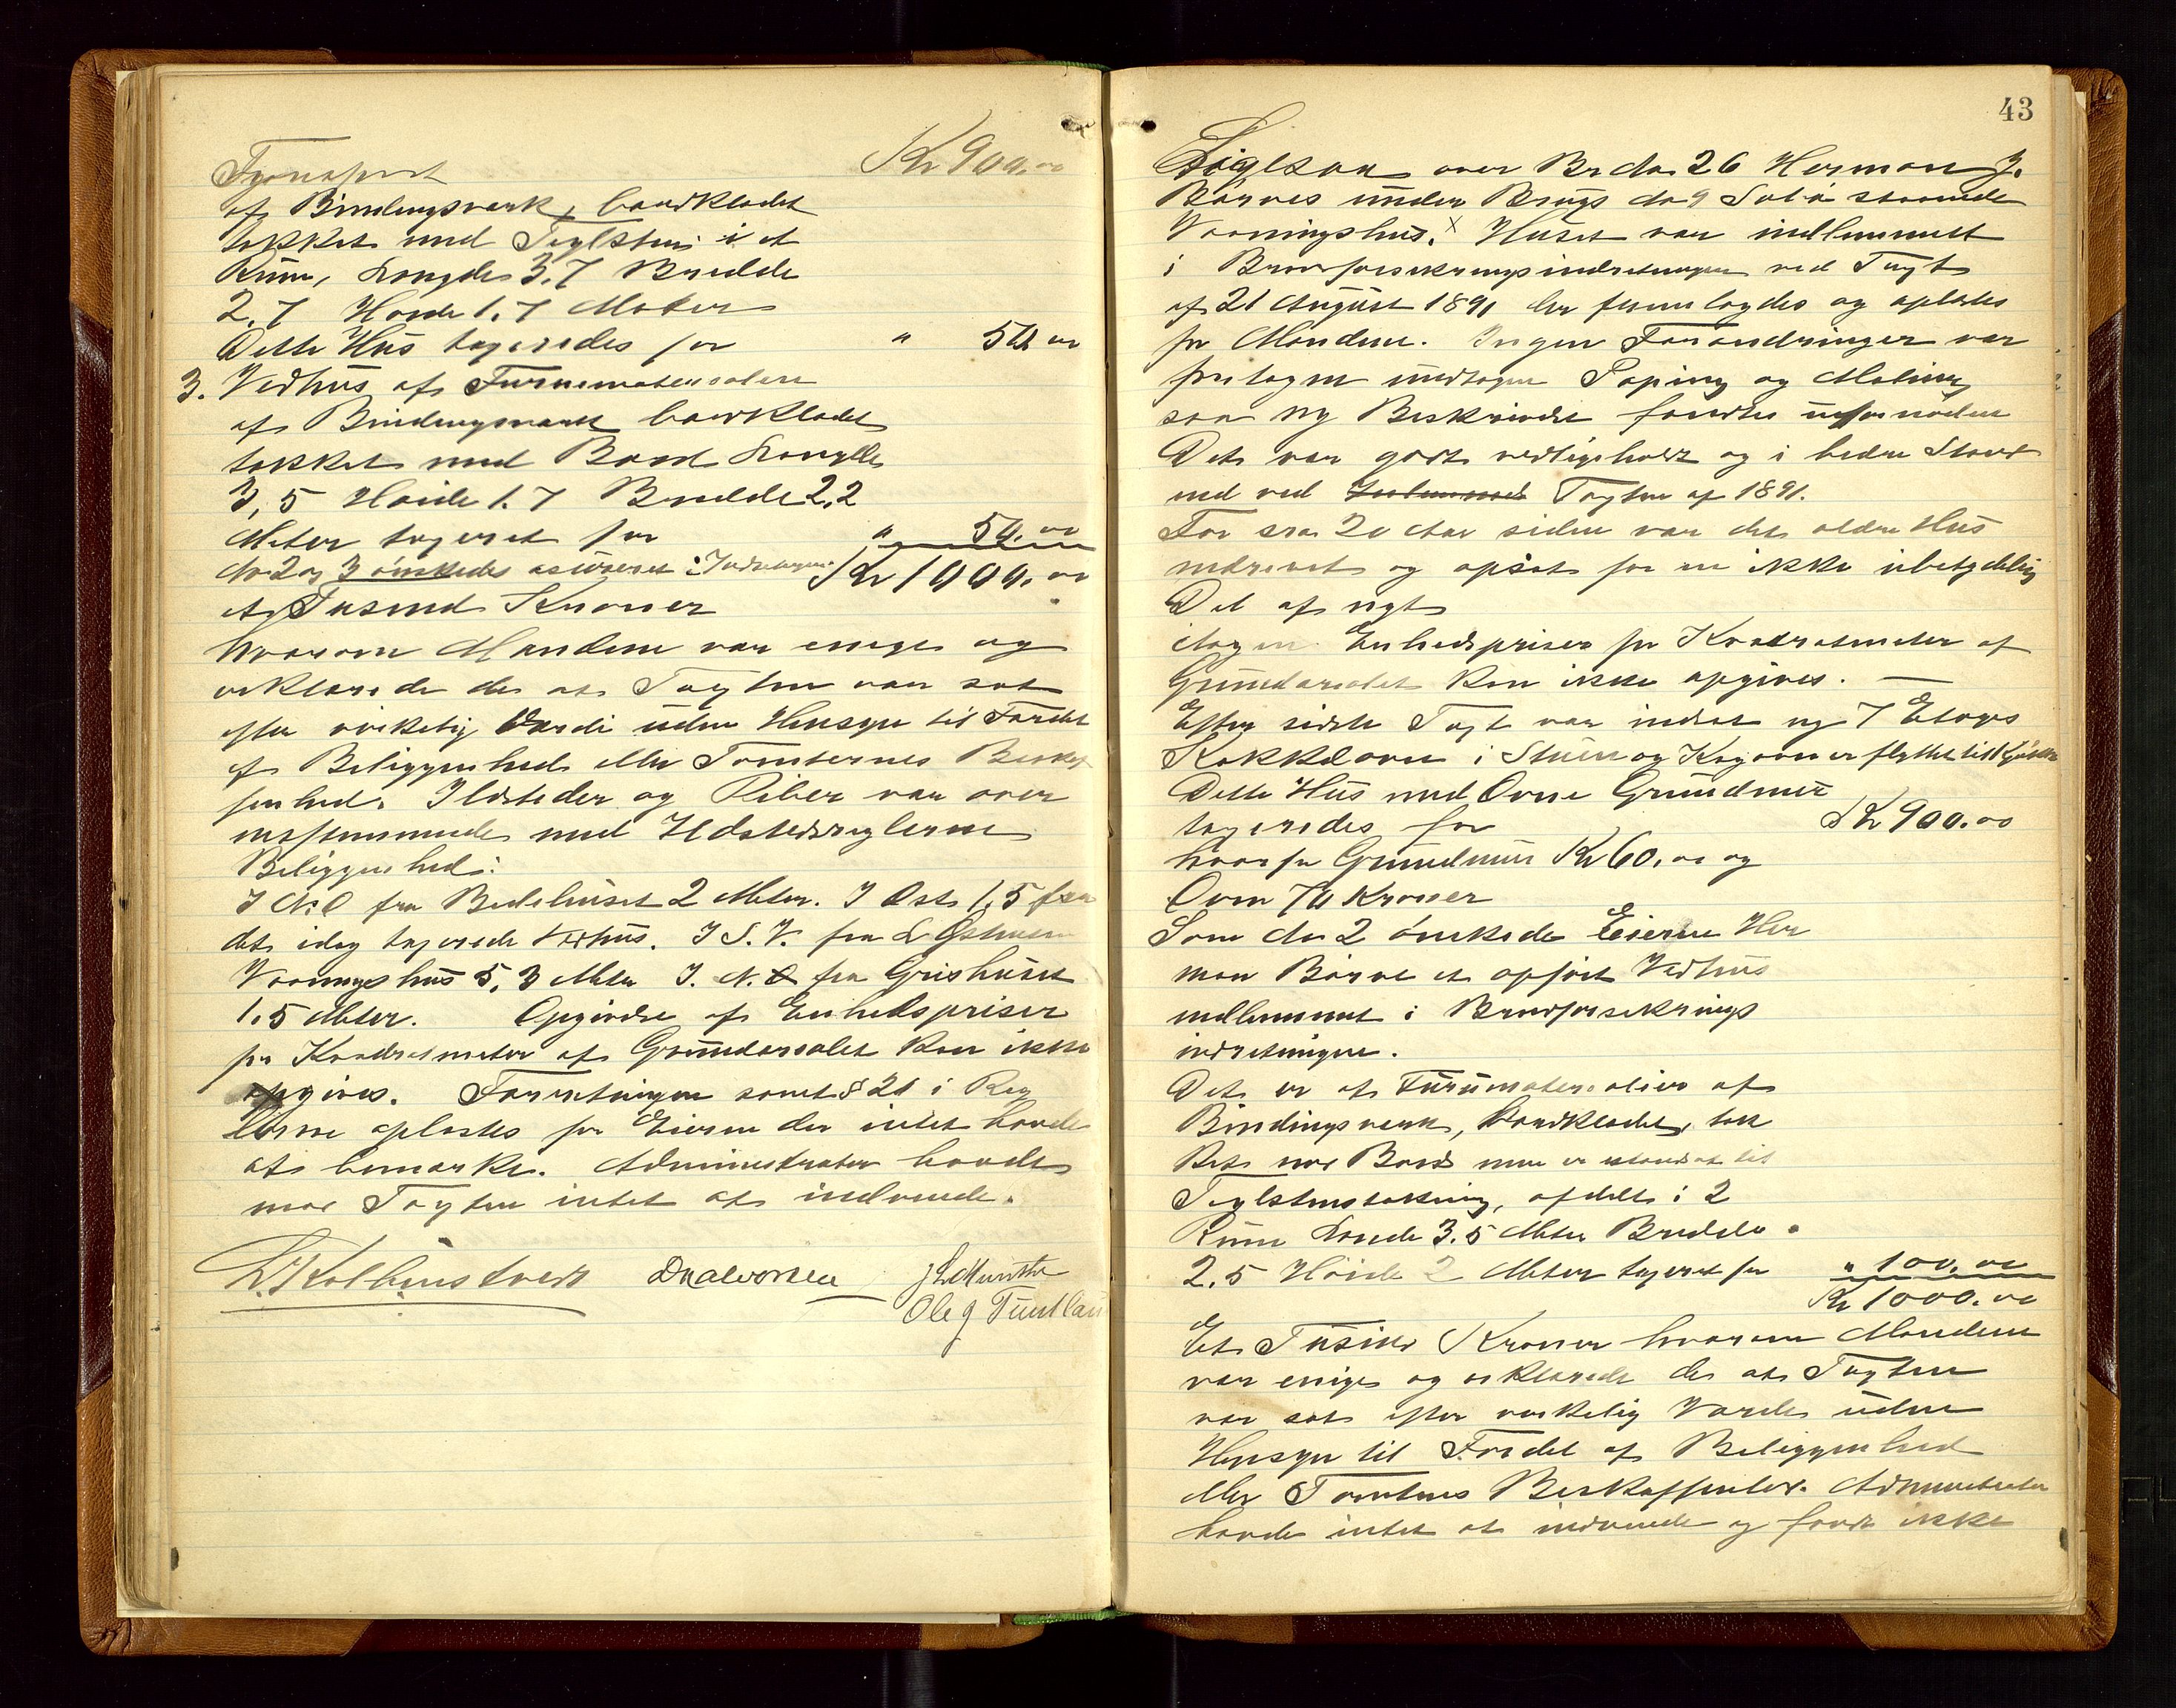 Transport Kr 900.00
af Bindingsværk, bordklædt
tækket med Teglsten i et
Rum, Længde 3.7 Bredde
2.7 Høide 1.7 Meter
Dette Hus taxeredes for " 50.00
3. Vedhus af Furumaterialier
af Bindingsværk bordklædt
tækket med Bord Længde
3,5 Høide 1.7 Bredde 2,2
Meter taxeret for " 50.00
No 2 og 3 ønskedes assureret i Indretningen Kr 1000.00
et Tusend Kroner
hvorom Mændene var enige og
erklærede de at Taxten var sat
efter virkelig Værdi uden Hensyn til Fordel
af Beliggenhed eller Tomternes Beskaf
fenhed. Ildsteder og Piber var over
ensstemmende med Ildstedsreglerne
Beliggenhed:
I N.O fra Bedehuset 2 Meter. I Ost 1,5 fra
det idag taxerede Vedhus. I S.V. fra L Østhuses
Vaaningshus 5,3 Meter I. N. O fra Grishuset
1.5 Meter. Opgivelse af Enhedspriser
pr Kvadratmeter af Grundarealet kan ikke
opgives. Forretningen samt § 21 i Reg
lerne oplæstes for Eieren der intet havde
at bemærke. Administrator havde
mod Taxten intet at indvende.
D. Kolbeinstvedt D Halvorsen J L Munthe
Ole J Tuntland
43
Skjøn over Br No 26 Herman J.
Børves under Brugs No 9 Solø staaende
Vaaningshus. x Huset var indlemmet
i Brandforsikringsindretningen ved Taxt
af 21 August 1891 der fremlagdes og oplæstes
for Mændene. Ingen Forandringer var
foretagen undtagen Paping og Maling
saa ny Beskrivelse fandtes ufornøden
Det var godt vedligeholdt og i bedre Stand
end ved Taxten af 1891.
For ca. 20 Aar siden var det ældre Hus
nedrevet og opsat for en ikke ubetydelig
Del af nyt
Nogen Enhedspriser pr Kvadratmeter af
Grundarealet kan ikke opgives. —
Efter sidste Taxt var indsat ny 7 Etages
Kakkelovn i Stuen og Kogovn er flyttet til Kjøkken
Dette Hus med Ovne Grundmur
taxeredes for Kr 900.00
hvoraf Grundmur Kr 60.00 og
Ovn 70 Kroner
Som No 2 ønskede Eieren Her
man Børve et opført Vedhus
indlemmet i Brandforsikrings
indretningen.
Det er af Furumaterialier af
Bindingsværk, bordklædt, tæk
ket med Bord men er istandsat til
Teglstenstækning, afdelt i 2
Rum Længde 3.5 Meter Bredde
2.5 Høide 2 Meter taxeret for " 100.00
Kr 1000.00
Et Tusind Kroner hvorom Mændene
var enige og erklærede de at Taxten
var sat efter virkelig Værdi uden
Hensyn til Fordel af Beliggenhed
eller Tomtens Beskaffenhed. Administrator
havde intet at indvende og fandt ikke